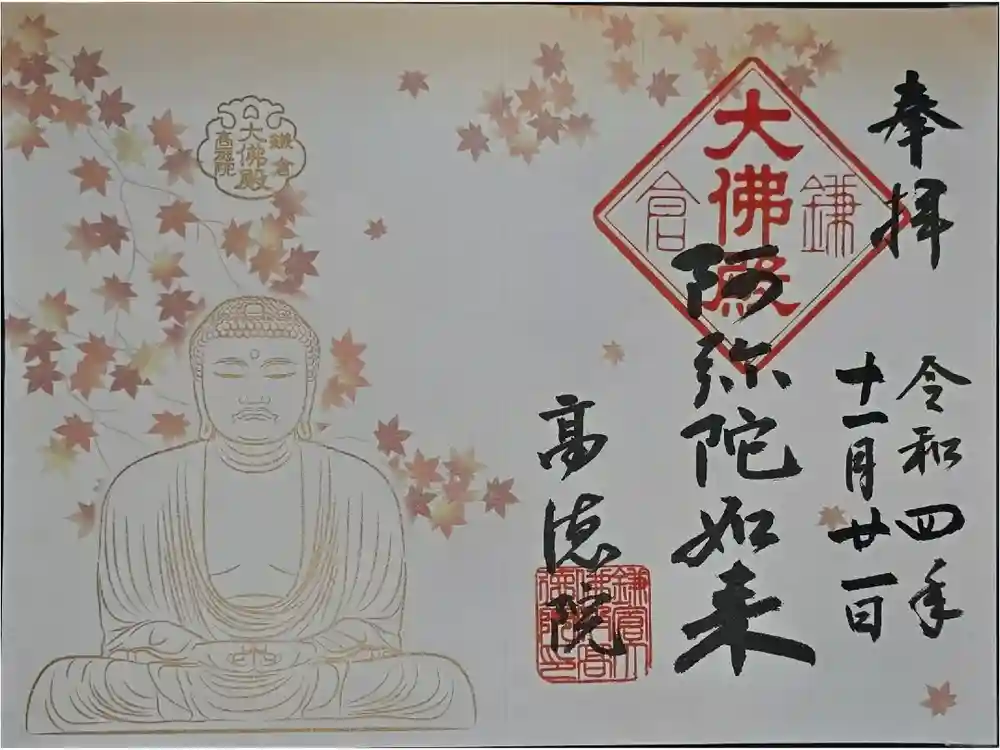 奉拝
令和四年
十一月廿一日
鎌倉
大佛殿
阿弥陀如来
高徳院
鎌倉
大佛殿
高徳院